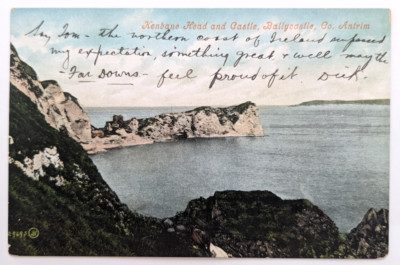 Kenbane Head and Castle, Ballycastle, Co. Antrim
Say Tom - the northern coast of Ireland surpassed
my expectation, something great & well - may the
- Far Downs - feel proud of it Dick.